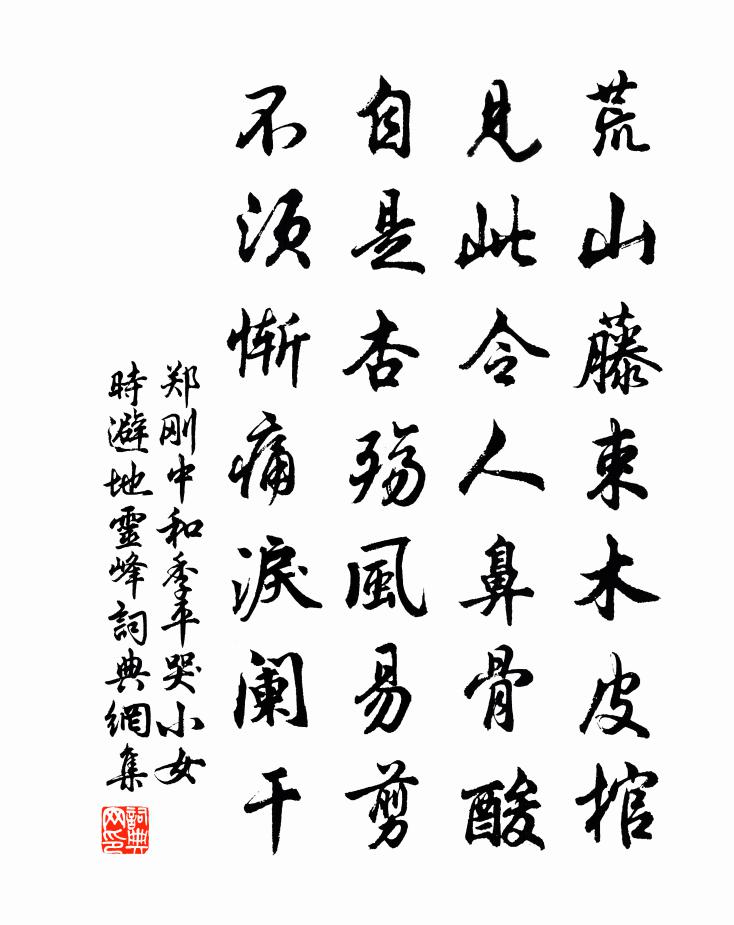 荒山藤束木皮棺
見此令人鼻骨酸
自是杏殤風易剪
不須慚痛淚阑干
郑刚中和季平哭小女
時避地靈峰詞典網集
詞典网印